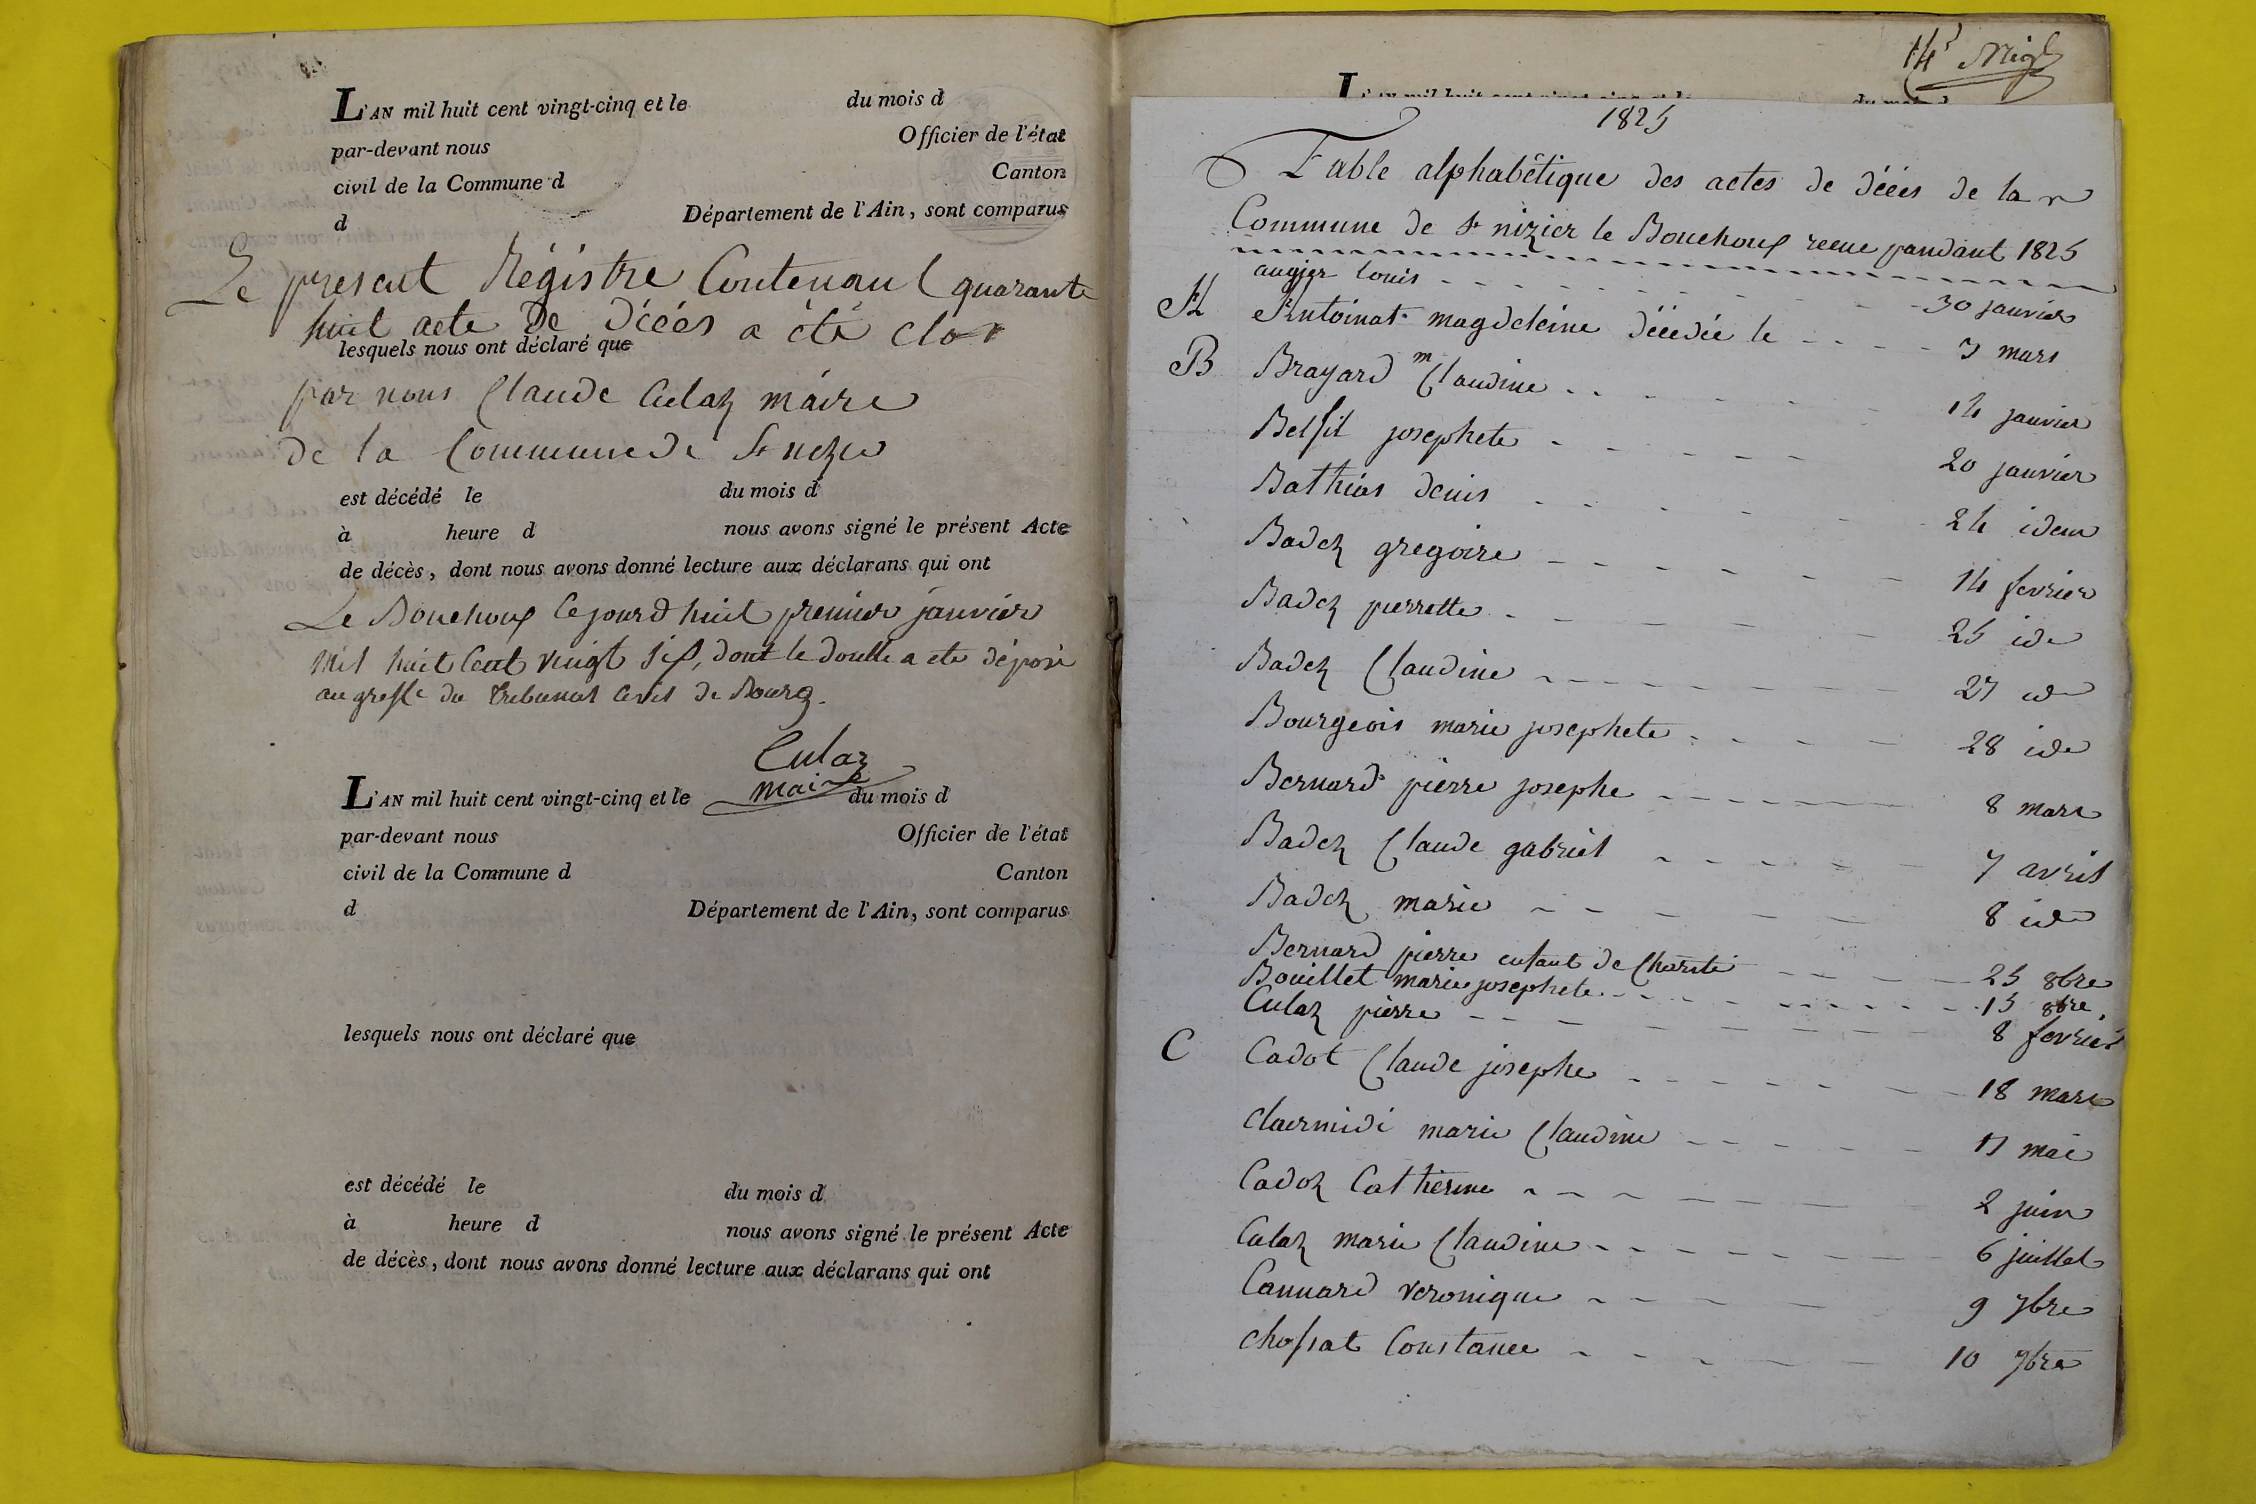 L'AN mil huit cent vingt-cinq et le du mois d
par-devant nous Officier de l'état
civil de la Commune d Canton
d Département de l'Ain, sont comparus
Le present Régistre Contenant quarante
huit acte De Décés a été clos
lesquels nous ont déclaré que
par nous Claude Culaz maire
de la Commune de St nizier
est décédé le du mois d
à heure d nous avons signé le présent Acte
de décès, dont nous avons donné lecture aux déclarans qui ont
Le Bouchoux Cejourd huit premier janvier
mil huit Cent vingt six, dont le double a ete déposé
au greffe du tribunal Civil de Bourg.
Culaz
maire
L'AN mil huit cent vingt-cinq et le du mois d
par-devant nous Officier de l'état
civil de la Commune d Canton
d Département de l'Ain, sont comparus
lesquels nous ont déclaré que
est décédé le du mois d
à heure d nous avons signé le présent Acte
de décès, dont nous avons donné lecture aux déclarans qui ont
1825
Table alphabétique des actes de décés de la
Commune de St nizier le Bouchoux recue pandant 1825
augier louis 30 janvier
A Antoinat magdeleine décédée le 7 mars
B Brayard m Claudine 14 janvier
Belfil josephete 20 janvier
Bathias denis 24 idem
Badez gregoire 14 fevrier
Badez pierrette 25 ide
Badez Claudine 27 id
Bourgeois marie josephete 28 ide
Bernard pierre josephe 8 mars
Badez Claude gabriel 7 avril
Badez marie 8 id
Bernard pierre enfant de Charité 25 8bre
Bouillet marie josephete 15 8bre.
Culaz pierre 8 fevrier
C Cadot Claude josephe 18 mars
Clairmidi marie Claudine 17 mai
Cadoz Catherine 2 juin
Culaz marie Claudine 6 juillet
Cannard veronique 9 7bre
Chossat Constance 10 7bre